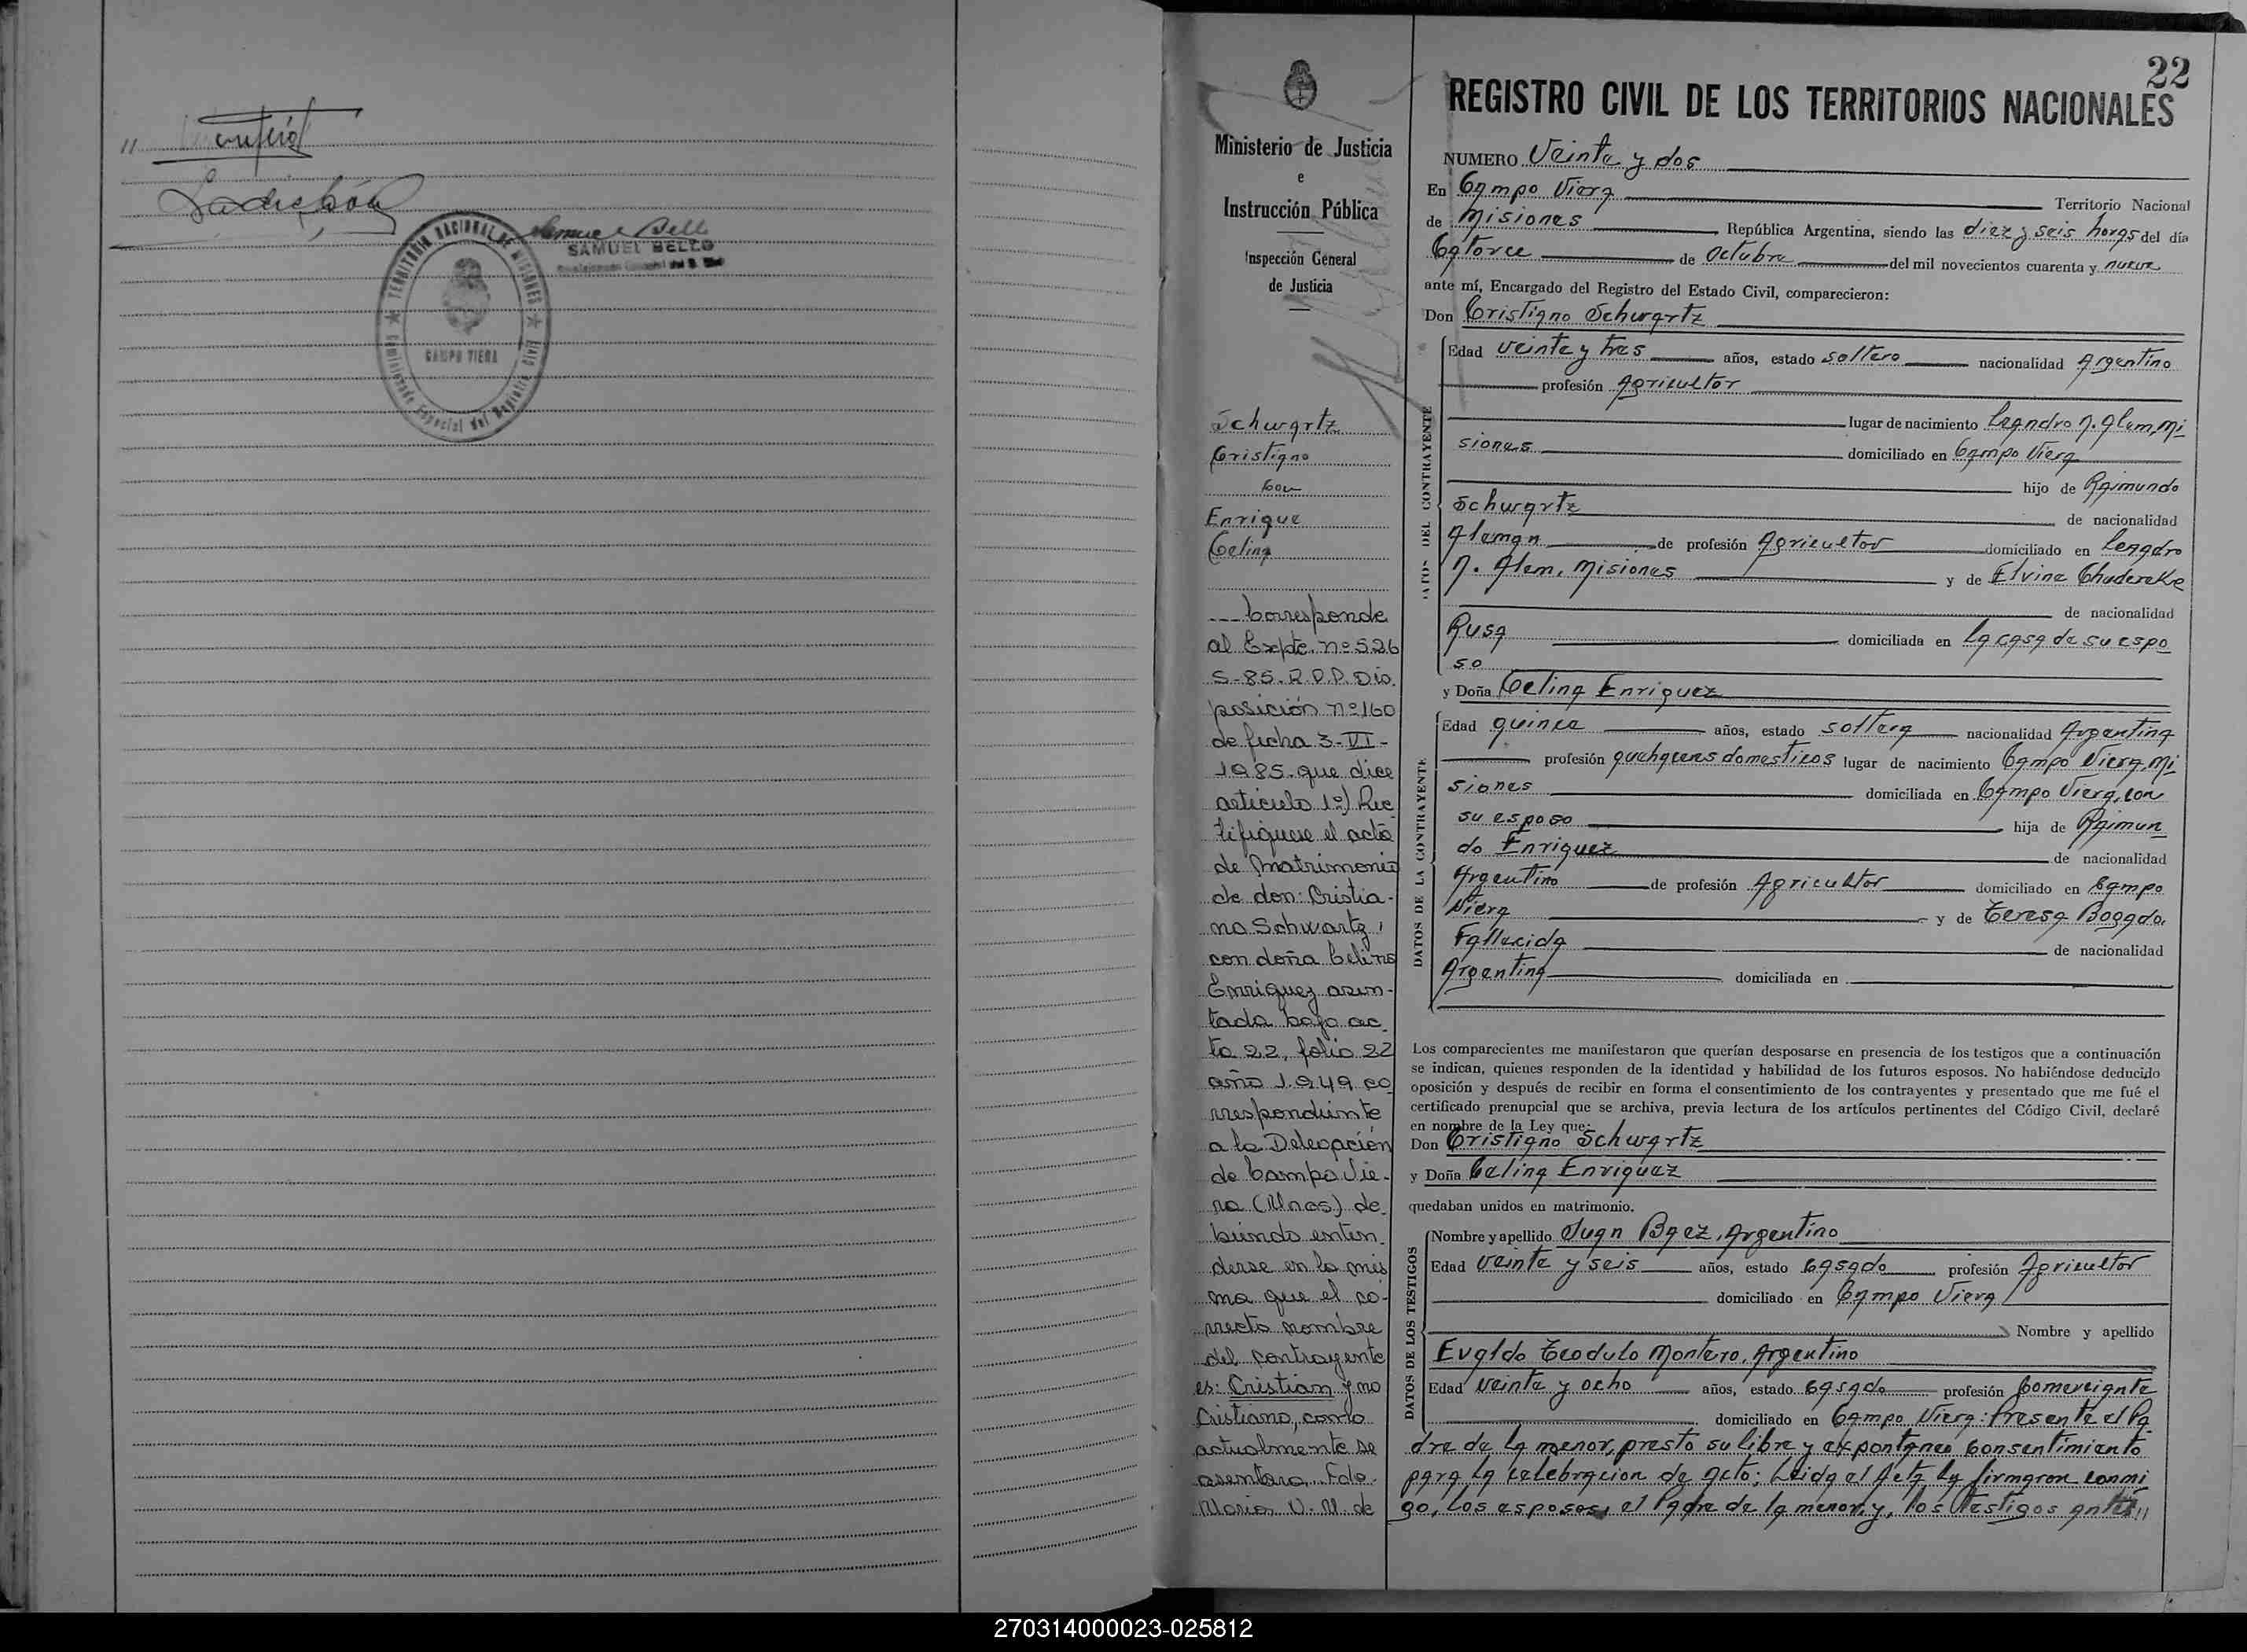 SAMUEL BELLO
TERRITORIO NACIONAL DE MISIONES
CAMPO VIERA
22
Ministerio de Justicia
e
Instrucción Pública
Inspección General
de Justicia
Schwartz
Cristiano
con
Enrique
Celina
--- Corresponde
al Expte. nº 526
S-85. R.P.P. Dis.
posición nº 160
de ficha 3-VI-
1985. que dice
artículo 1º) Rec
tifiquese el acta
de Matrimonio
de don: Cristia-
no Schwartz,
con doña Celina
Enriquez asen-
tada bajo ac.
ta 22, folio 22
año 1.949 co
rrespondiente
a la Delegación
de Campo Vie-
ra (Mnes) de.
biendo enten.
derse en la mis
ma que el co-
rrecto nombre
del contrayente
es: Cristian y no
Cristiano, como
actualmente se
asentara. Fdo.
María V. M. de
REGISTRO CIVIL DE LOS TERRITORIOS NACIONALES
NUMERO Veinte y dos
En Campo Viera Territorio Nacional
de Misiones República Argentina, siendo las diez y seis horas del día
Catorce de Octubre del mil novecientos cuarenta y nueve
ante mí, Encargado del Registro del Estado Civil, comparecieron:
Don Cristiano Schwartz
DATOS DEL CONTRAYENTE
Edad veinte y tres años, estado soltero nacionalidad Argentino
profesión Agricultor
lugar de nacimiento Leandro N. Alem, Mi
siones domiciliado en Campo Viera
hijo de Raimundo
Schwartz de nacionalidad
Aleman de profesión Agricultor domiciliado en Leandro
N. Alem, Misiones y de Elvine Chudereke
de nacionalidad
Rusa domiciliada en la casa de su espo
so
y Doña Celina Enriquez
DATOS DE LA CONTRAYENTE
Edad quince años, estado soltera nacionalidad Argentina
profesión quehaceres domesticos lugar de nacimiento Campo Viera, Mi
siones domiciliada en Campo Viera, con
su esposo hija de Raimun
do Enriquez de nacionalidad
Argentino de profesión Agricultor domiciliado en Campo
Viera y de Teresa Bogado.
Fallecida de nacionalidad
Argentina domiciliada en
Los comparecientes me manifestaron que querían desposarse en presencia de los testigos que a continuación
se indican, quienes responden de la identidad y habilidad de los futuros esposos. No habiéndose deducido
oposición y después de recibir en forma el consentimiento de los contrayentes y presentado que me fué el
certificado prenupcial que se archiva, previa lectura de los artículos pertinentes del Código Civil, declaré
en nombre de la Ley que:
Don Cristiano Schwartz
y Doña Celina Enriquez
quedaban unidos en matrimonio.
DATOS DE LOS TESTIGOS
Nombre y apellido Juan Baez, Argentino
Edad veinte y seis años, estado casado profesión Agricultor
domiciliado en Campo Viera
Nombre y apellido
Evaldo Teodulo Montero, Argentino
Edad veinte y ocho años, estado casado profesión Comerciante
domiciliado en Campo Viera: Presente el Pa
dre de la menor, presto su libre y expontaneo consentimiento
para la celebracion de acto; Leida el Acta la firmaron conmi
go, los esposos, el Padre de la menor, y, los testigos antes//
270314000023-025812